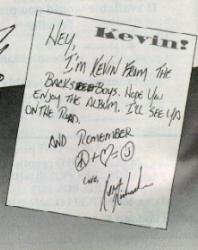 Kevin!
Hey,
I'm Kevin from the
Backstreet Boys. Hope you
enjoy the album. I'll see ya
on the road.
And remember
☮ + ♡ = ☺
Love,